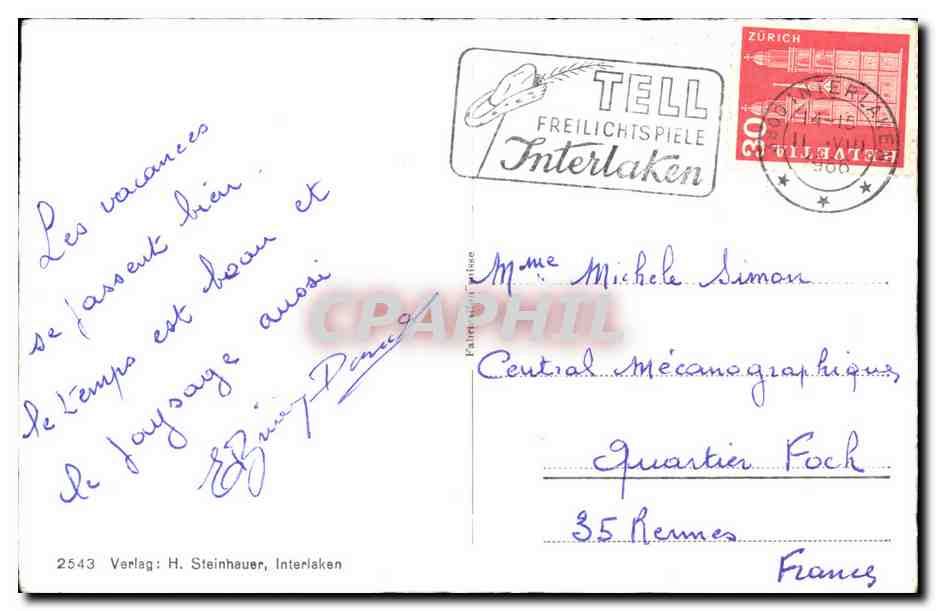 TELL
FREILICHTSPIELE
Interlaken
ZÜRICH
30
HELVETIA
INTERLAKEN
14-15
1966
Les vacances
se passent bien.
le temps est beau et
le paysage aussi
Mme Michele Simon
Central Mécanographique
Quartier Foch
35 Rennes
France
CPAPHIL
2543 Verlag: H. Steinhauer, Interlaken